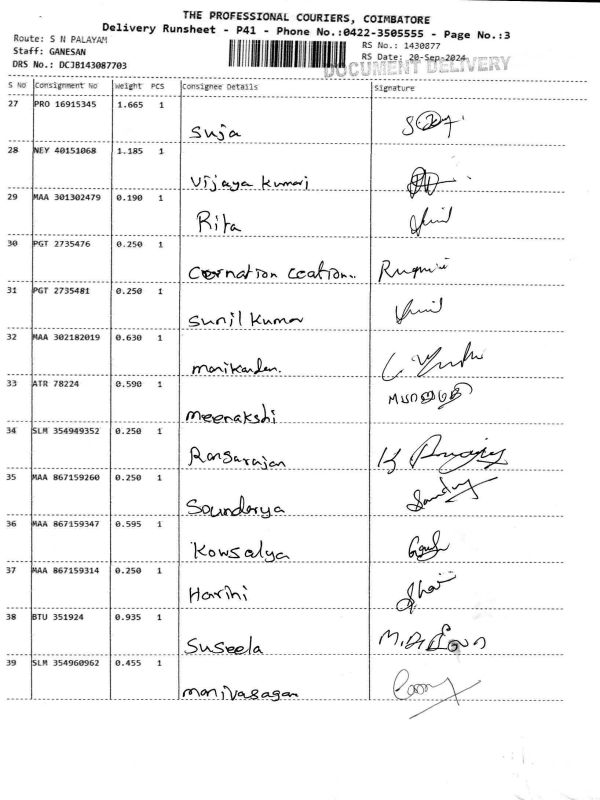 THE PROFESSIONAL COURIERS, COIMBATORE
Delivery Runsheet - P41 - Phone No.:0422-3505555 - Page No.:3
Route: S N PALAYAM
RS No.: 1430877
Staff: GANESAN
RS Date: 20-Sep-2024
DRS No.: DCJB143087703
DOCUMENT DELIVERY
S No Consignment No Weight PCS Consignee Details Signature
27 PRO 16915345 1.665 1
Suja
28 NEY 40151068 1.185 1
Vijaya Kumari
29 MAA 301302479 0.190 1
Rita
30 PGT 2735476 0.250 1
31 PGT 2735481 0.250 1
Sunil Kumar
32 MAA 302182019 0.630 1
manikandan.
33 ATR 78224 0.590 1
meenakshi
34 SLM 354949352 0.250 1
Rangarajan
35 MAA 867159260 0.250 1
Soundarya
36 MAA 867159347 0.595 1
Kowsalya
37 MAA 867159314 0.250 1
Harini
38 BTU 351924 0.935 1
Suseela
39 SLM 354960962 0.455 1
manivasagan